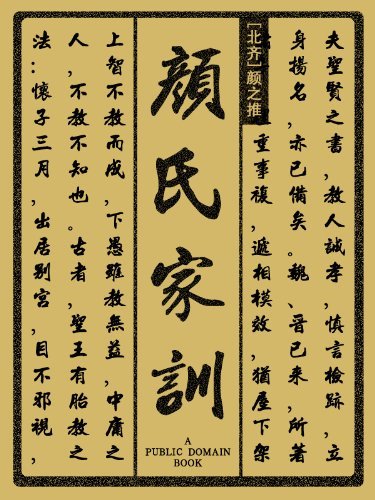 夫聖賢之書，教人誠孝，慎言檢跡，立
身揚名，亦已備矣。魏、晉已來，所著
重事複，遞相模效，猶屋下架
[北齐]颜之推
顔氏家訓
A
PUBLIC DOMAIN
BOOK
上智不教而成，下愚雖教無益，中庸之
人，不教不知也。古者，聖王有胎教之
法：懷子三月，出居别宮，目不邪視，